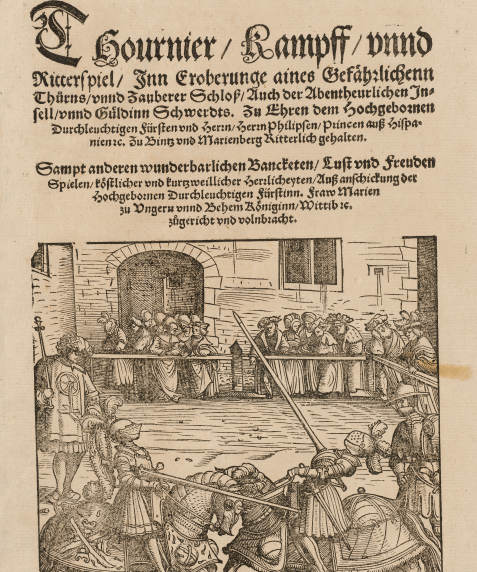 Thournier / Kampff / vnnd
Ritterspiel / Inn Eroberunge aines Gefährlichenn
Thůrns / vnnd Zauberer Schloß / Auch der Abentheurlichen In-
sell / vnnd Güldinn Schwerdts. Zu Ehren dem Hochgebornen
Durchleuchtigen Fürsten vnd Herrn / Herrn Philipsen / Princen auß Hispa-
nien ꝛc. Zu Bintz vnd Marienberg Ritterlich gehalten.
Sampt anderen wunderbarlichen Bancketen / Lust vnd Freuden
Spielen / köstlicher vnd kurtzweillicher Herrlicheyten / Auß anschickung der
Hochgebornen Durchleuchtigen Fürstinn. Fraw Marien
zu Vngern vnnd Behem Königinn / Wittib ꝛc.
zůgericht vnd volnbracht.